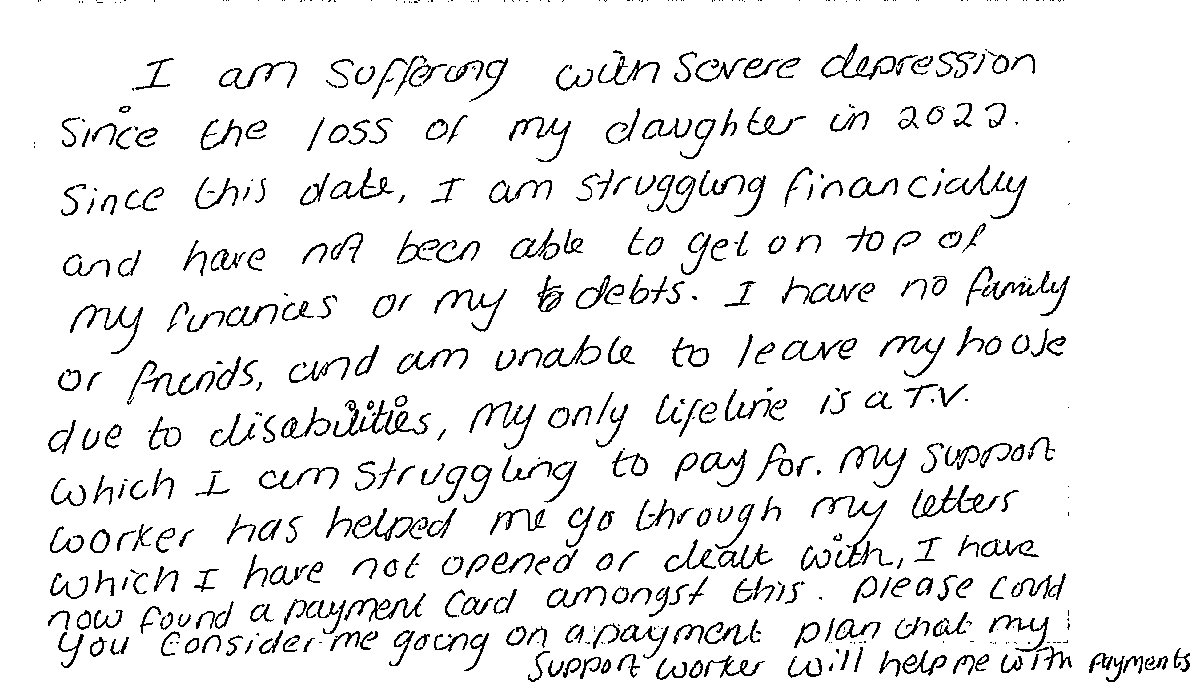 I am suffering with severe depression
Since the loss of my daughter in 2022.
Since this date, I am struggling financially
and have not been able to get on top of
my finances or my debts. I have no family
or friends, and am unable to leave my house
due to disabilities, my only lifeline is a T.V.
which I am struggling to pay for. My support
worker has helped me go through my letters
which I have not opened or dealt with, I have
now found a payment card amongst this. Please could
you consider me going on a payment plan that my
support worker will help me with payments